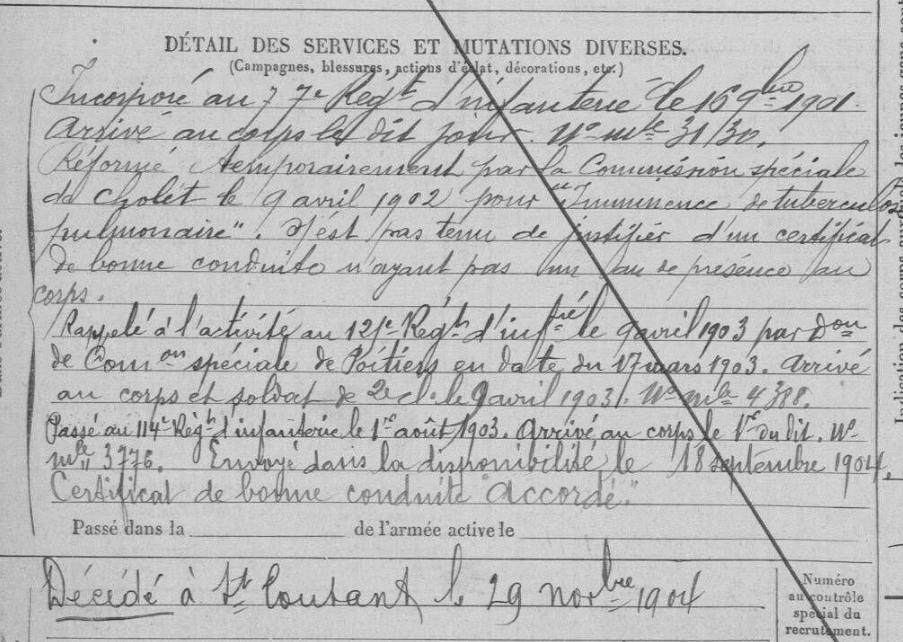 DÉTAIL DES SERVICES ET MUTATIONS DIVERSES.
(Campagnes, blessures, actions d'éclat, décorations, etc.)
Incorporé au 77e Régt d'infanterie le 16 9bre 1901.
Arrivé au corps le dit jour. No mle 3130.
Réformé temporairement par la Commission spéciale
de Cholet le 9 avril 1902 pour "Imminence de tuberculose
pulmonaire". N'est pas tenu de justifier d'un certificat
de bonne conduite n'ayant pas un an de présence au
corps.
Rappelé à l'activité au 121e Régt d'infrie le 9 avril 1903 par Don
de Comon spéciale de Poitiers en date du 17 mars 1903. Arrivé
au corps et soldat de 2e cl. le 9 avril 1903. No mle 4388.
Passé au 114e Régt d'infanterie le 1er août 1903. Arrivé au corps le 1er du dit. No
mle 3776. Envoyé dans la disponibilité le 18 septembre 1904.
Certificat de bonne conduite "Accordé."
Passé dans la de l'armée active le
Décédé à St Coutant le 29 novbre 1904
Numéro
au contrôle
spécial du
recrutement.